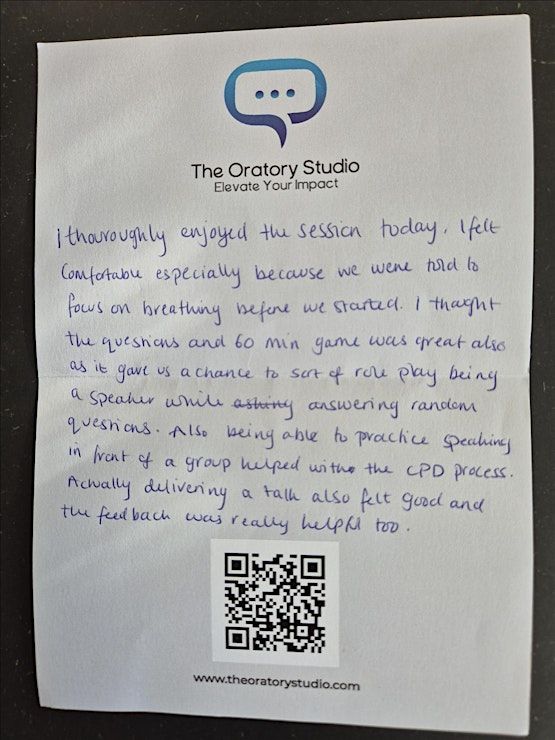 The Oratory Studio
Elevate Your Impact
I thouroughly enjoyed the session today. I felt
comfortable especially because we were told to
focus on breathing before we started. I thought
the questions and 60 min game was great also
as it gave us a chance to sort of role play being
a speaker while asking answering random
questions. Also being able to practice speaking
in front of a group helped with the CPD process.
Actually delivering a talk also felt good and
the feedback was really helpful too.
www.theoratorystudio.com